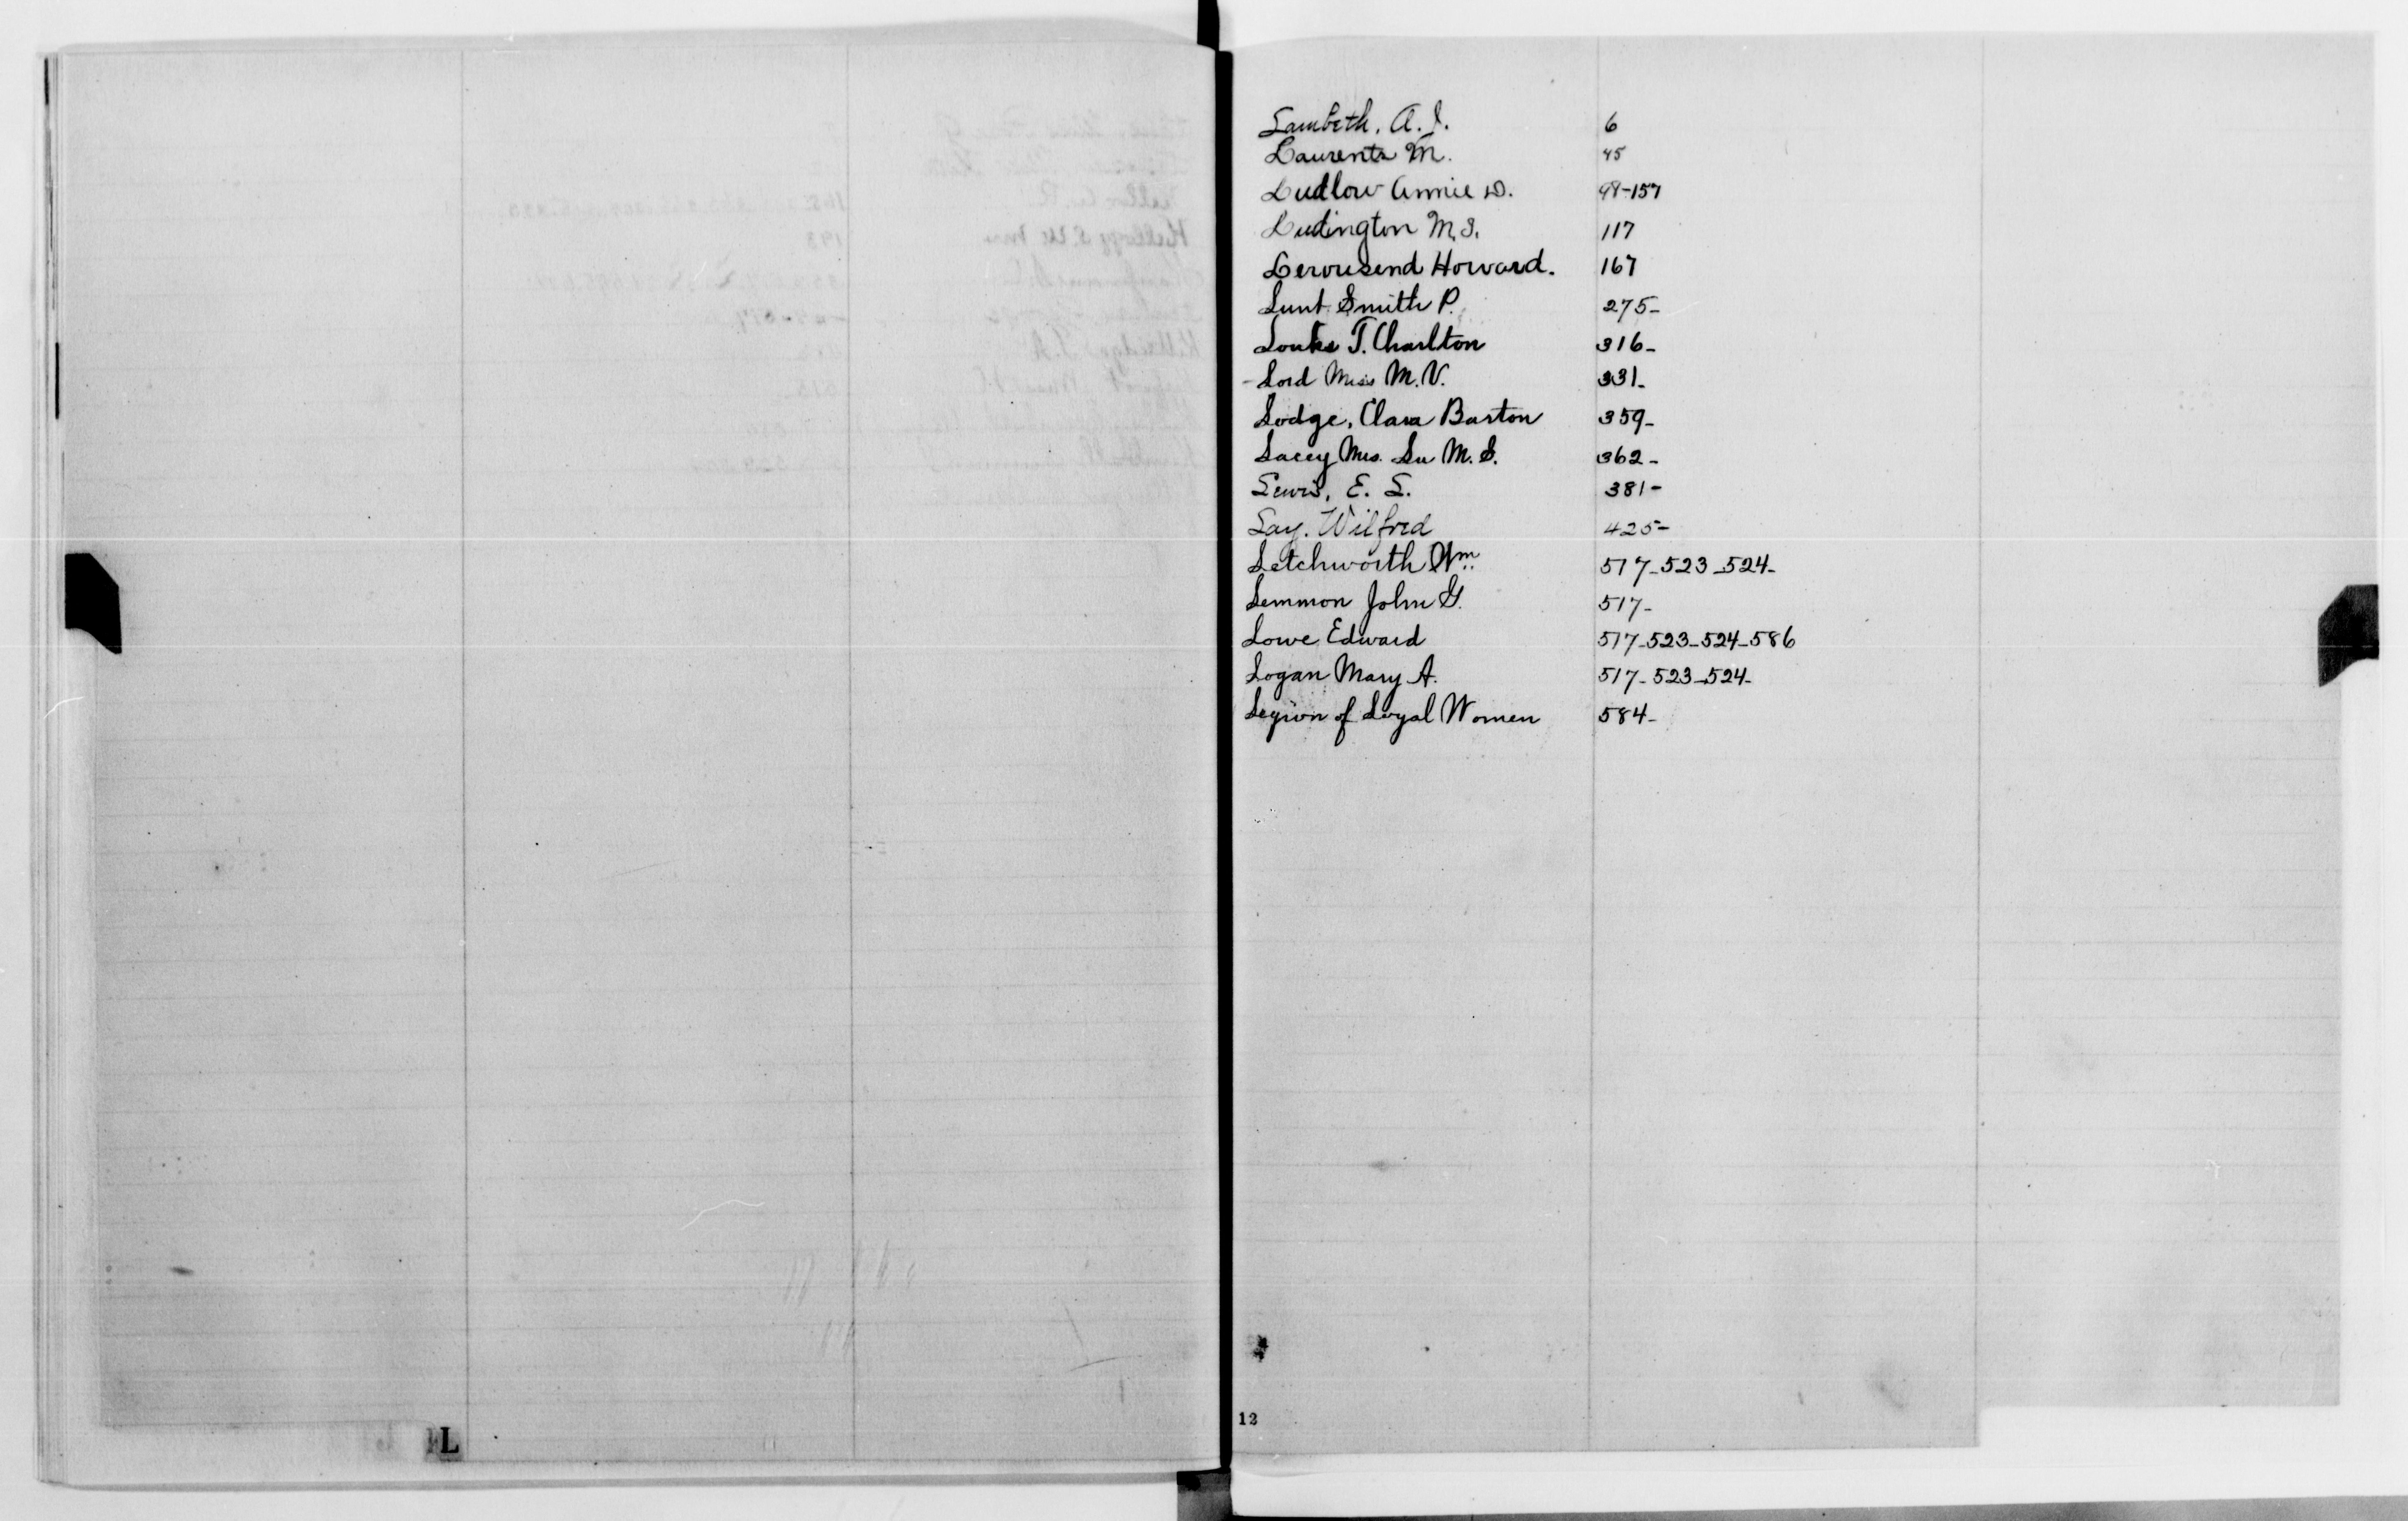 Lambeth, A. J. 6
Laurents M. 45
Ludlow Annie D. 98-157
Ludington M. I. 117
Lerousend Howard. 167
Lunt Smith P. 275-
Louks T. Charlton 316-
-Lord Miss M. V. 331-
Lodge, Clara Barton 359-
Lacey Mrs. Lu M. S. 362-
Lewis, E. L. 381-
Lay. Wilfred 425-
Letchworth Wm. 517-523-524-
Lemmon John G. 517-
Lowe Edward 517-523-524-586
Logan Mary A. 517-523-524-
Legion of Loyal Women 584-
12
L